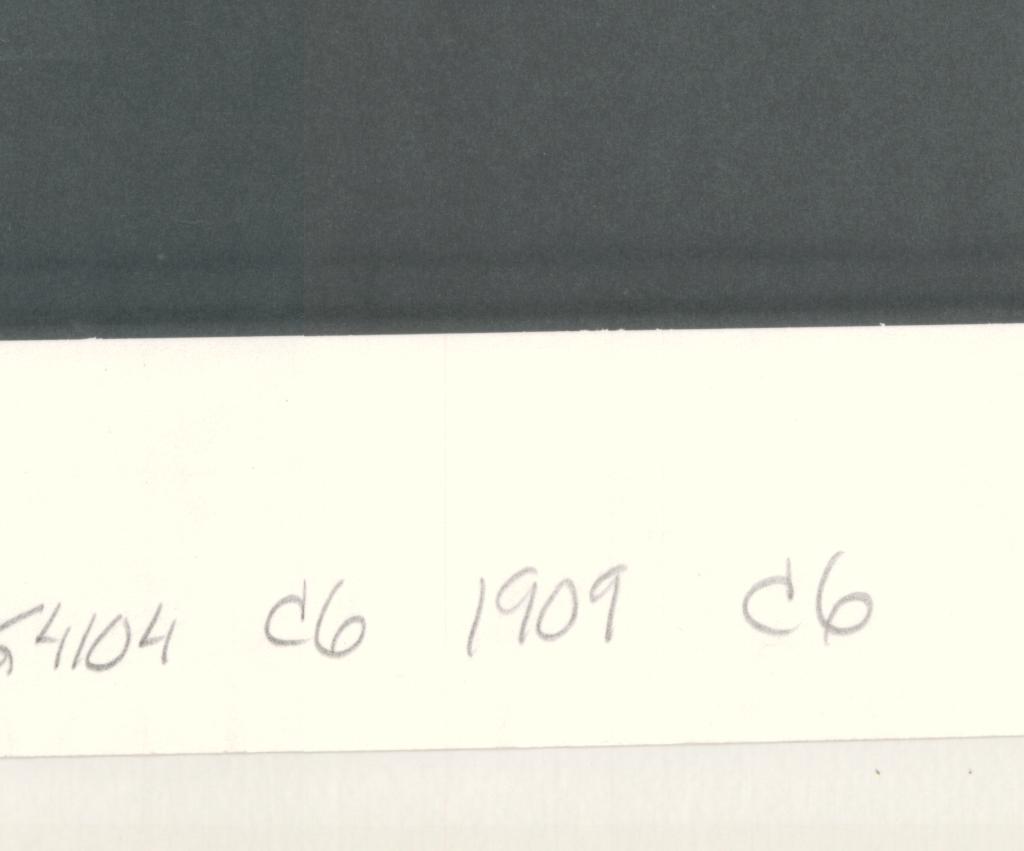 54104 C6 1909 C6